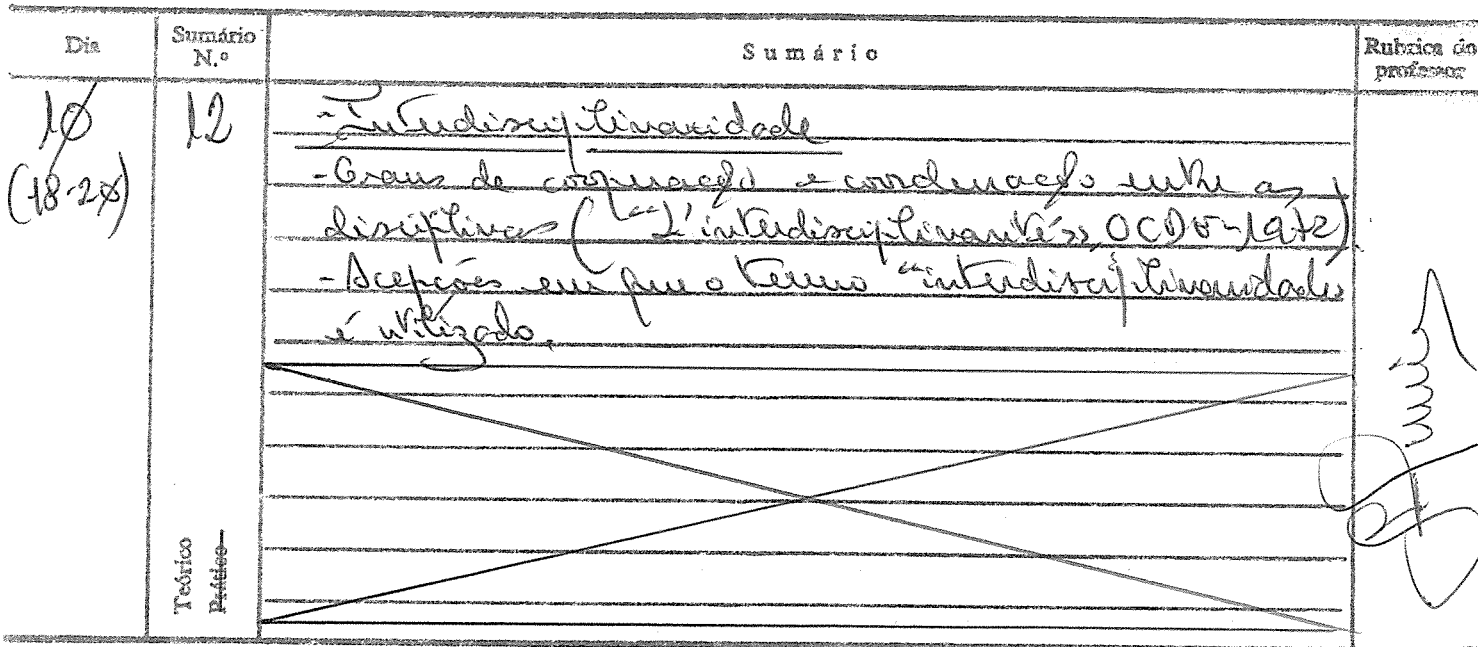 Dia
Sumário N.º
Sumário
Rubrica do professor
10
(18-20)
12
- Interdisciplinaridade
- Graus de cooperação e coordenação entre as
disciplinas ("L'interdisciplinarité», OCDE-1972)
- Acepções em que o termo "interdisciplinaridade"
é utilizado.
Teórico
Prático